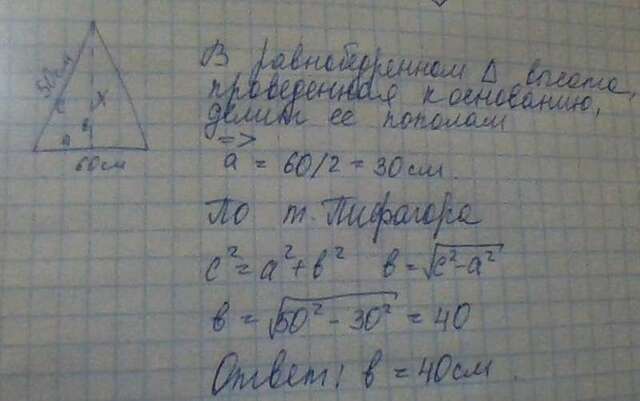 50см
c
x
a
в
60см
В равнобедренном Δ высота,
проведенная к основанию,
делит ее пополам
=>
a = 60/2 = 30см.
По т. Пифагора
c² = a² + в² в = √c² - a²
в = √50² - 30² = 40
Ответ: в = 40см.